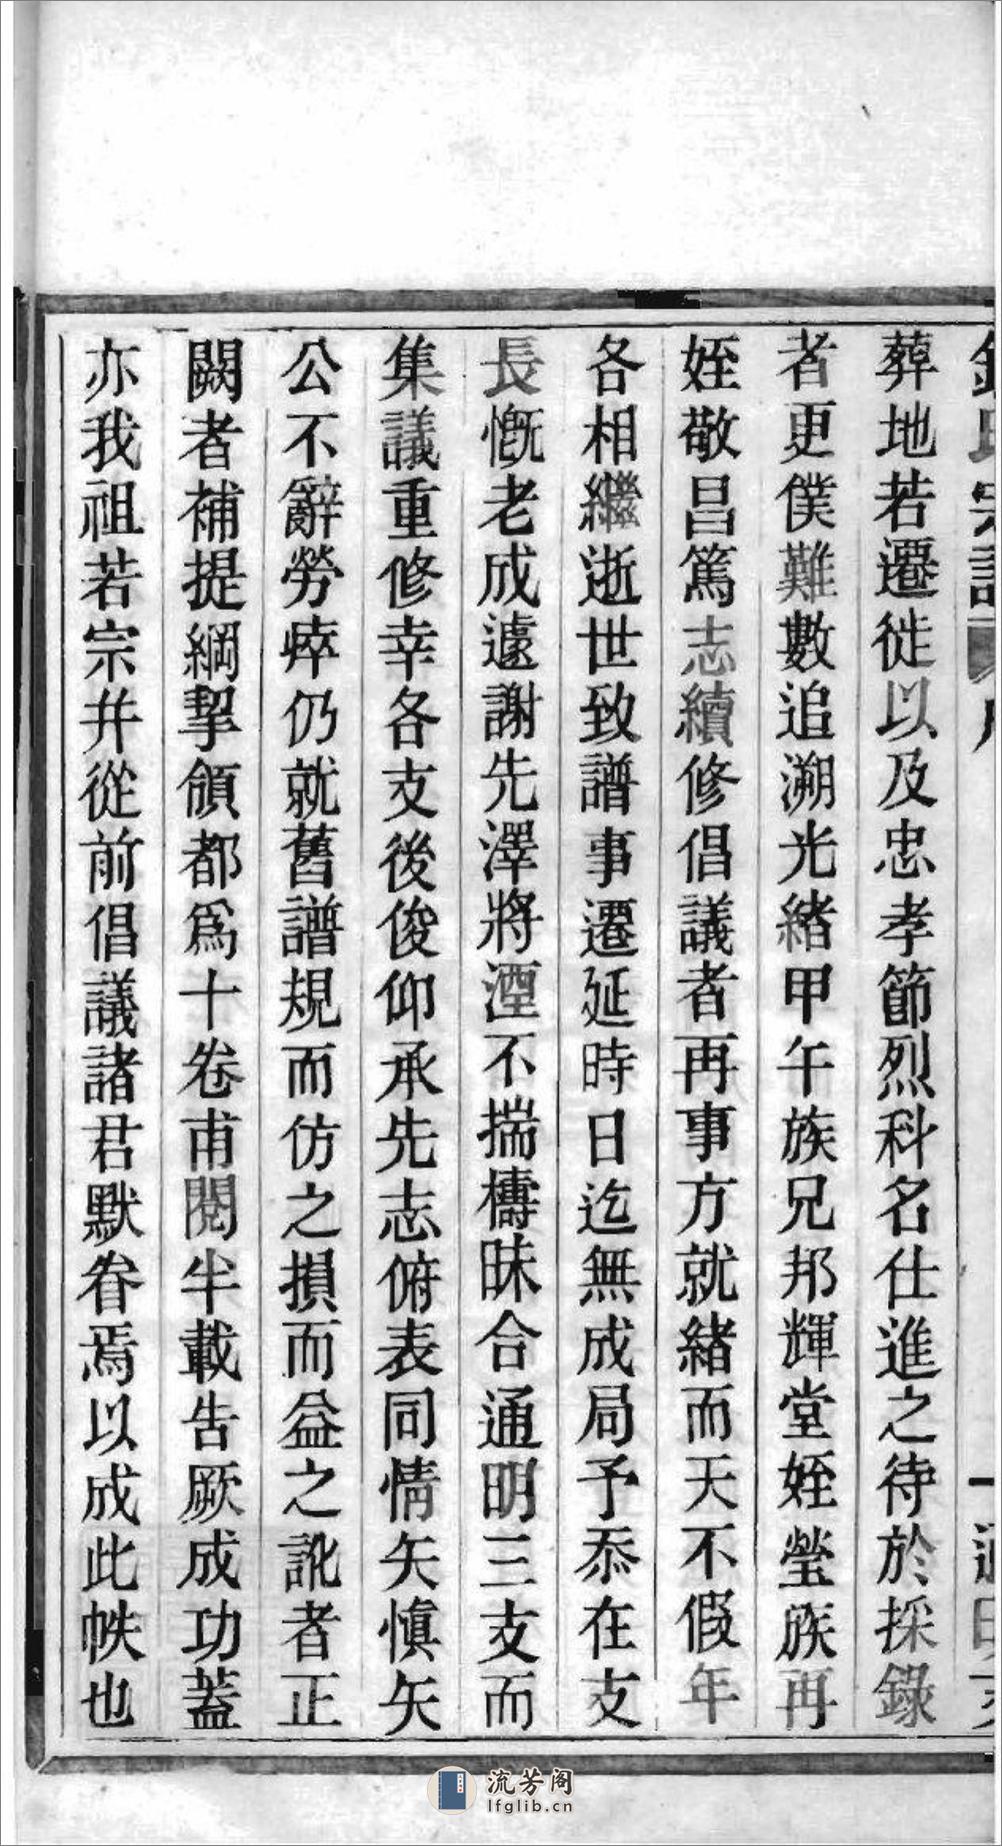 宗譜
序
一
葬地若遷徙以及忠孝節烈科名仕進之待於採錄
者更僕難數追溯光緒甲午族兄邦輝堂姪瑩族再
姪敬昌篤志續修倡議者再事方就緒而天不假年
各相繼逝世致譜事遷延時日迄無成局予忝在支
長慨老成遽謝先澤將湮不揣檮昧合通明三支而
集議重修幸各支後俊仰承先志俯表同情矢慎矢
公不辭勞瘁仍就舊譜規而仿之損而益之訛者正
闕者補提綱挈領都爲十卷甫閱半載告厥成功蓋
亦我祖若宗幷從前倡議諸君默眷焉以成此帙也
流芳阁
lfglib.cn